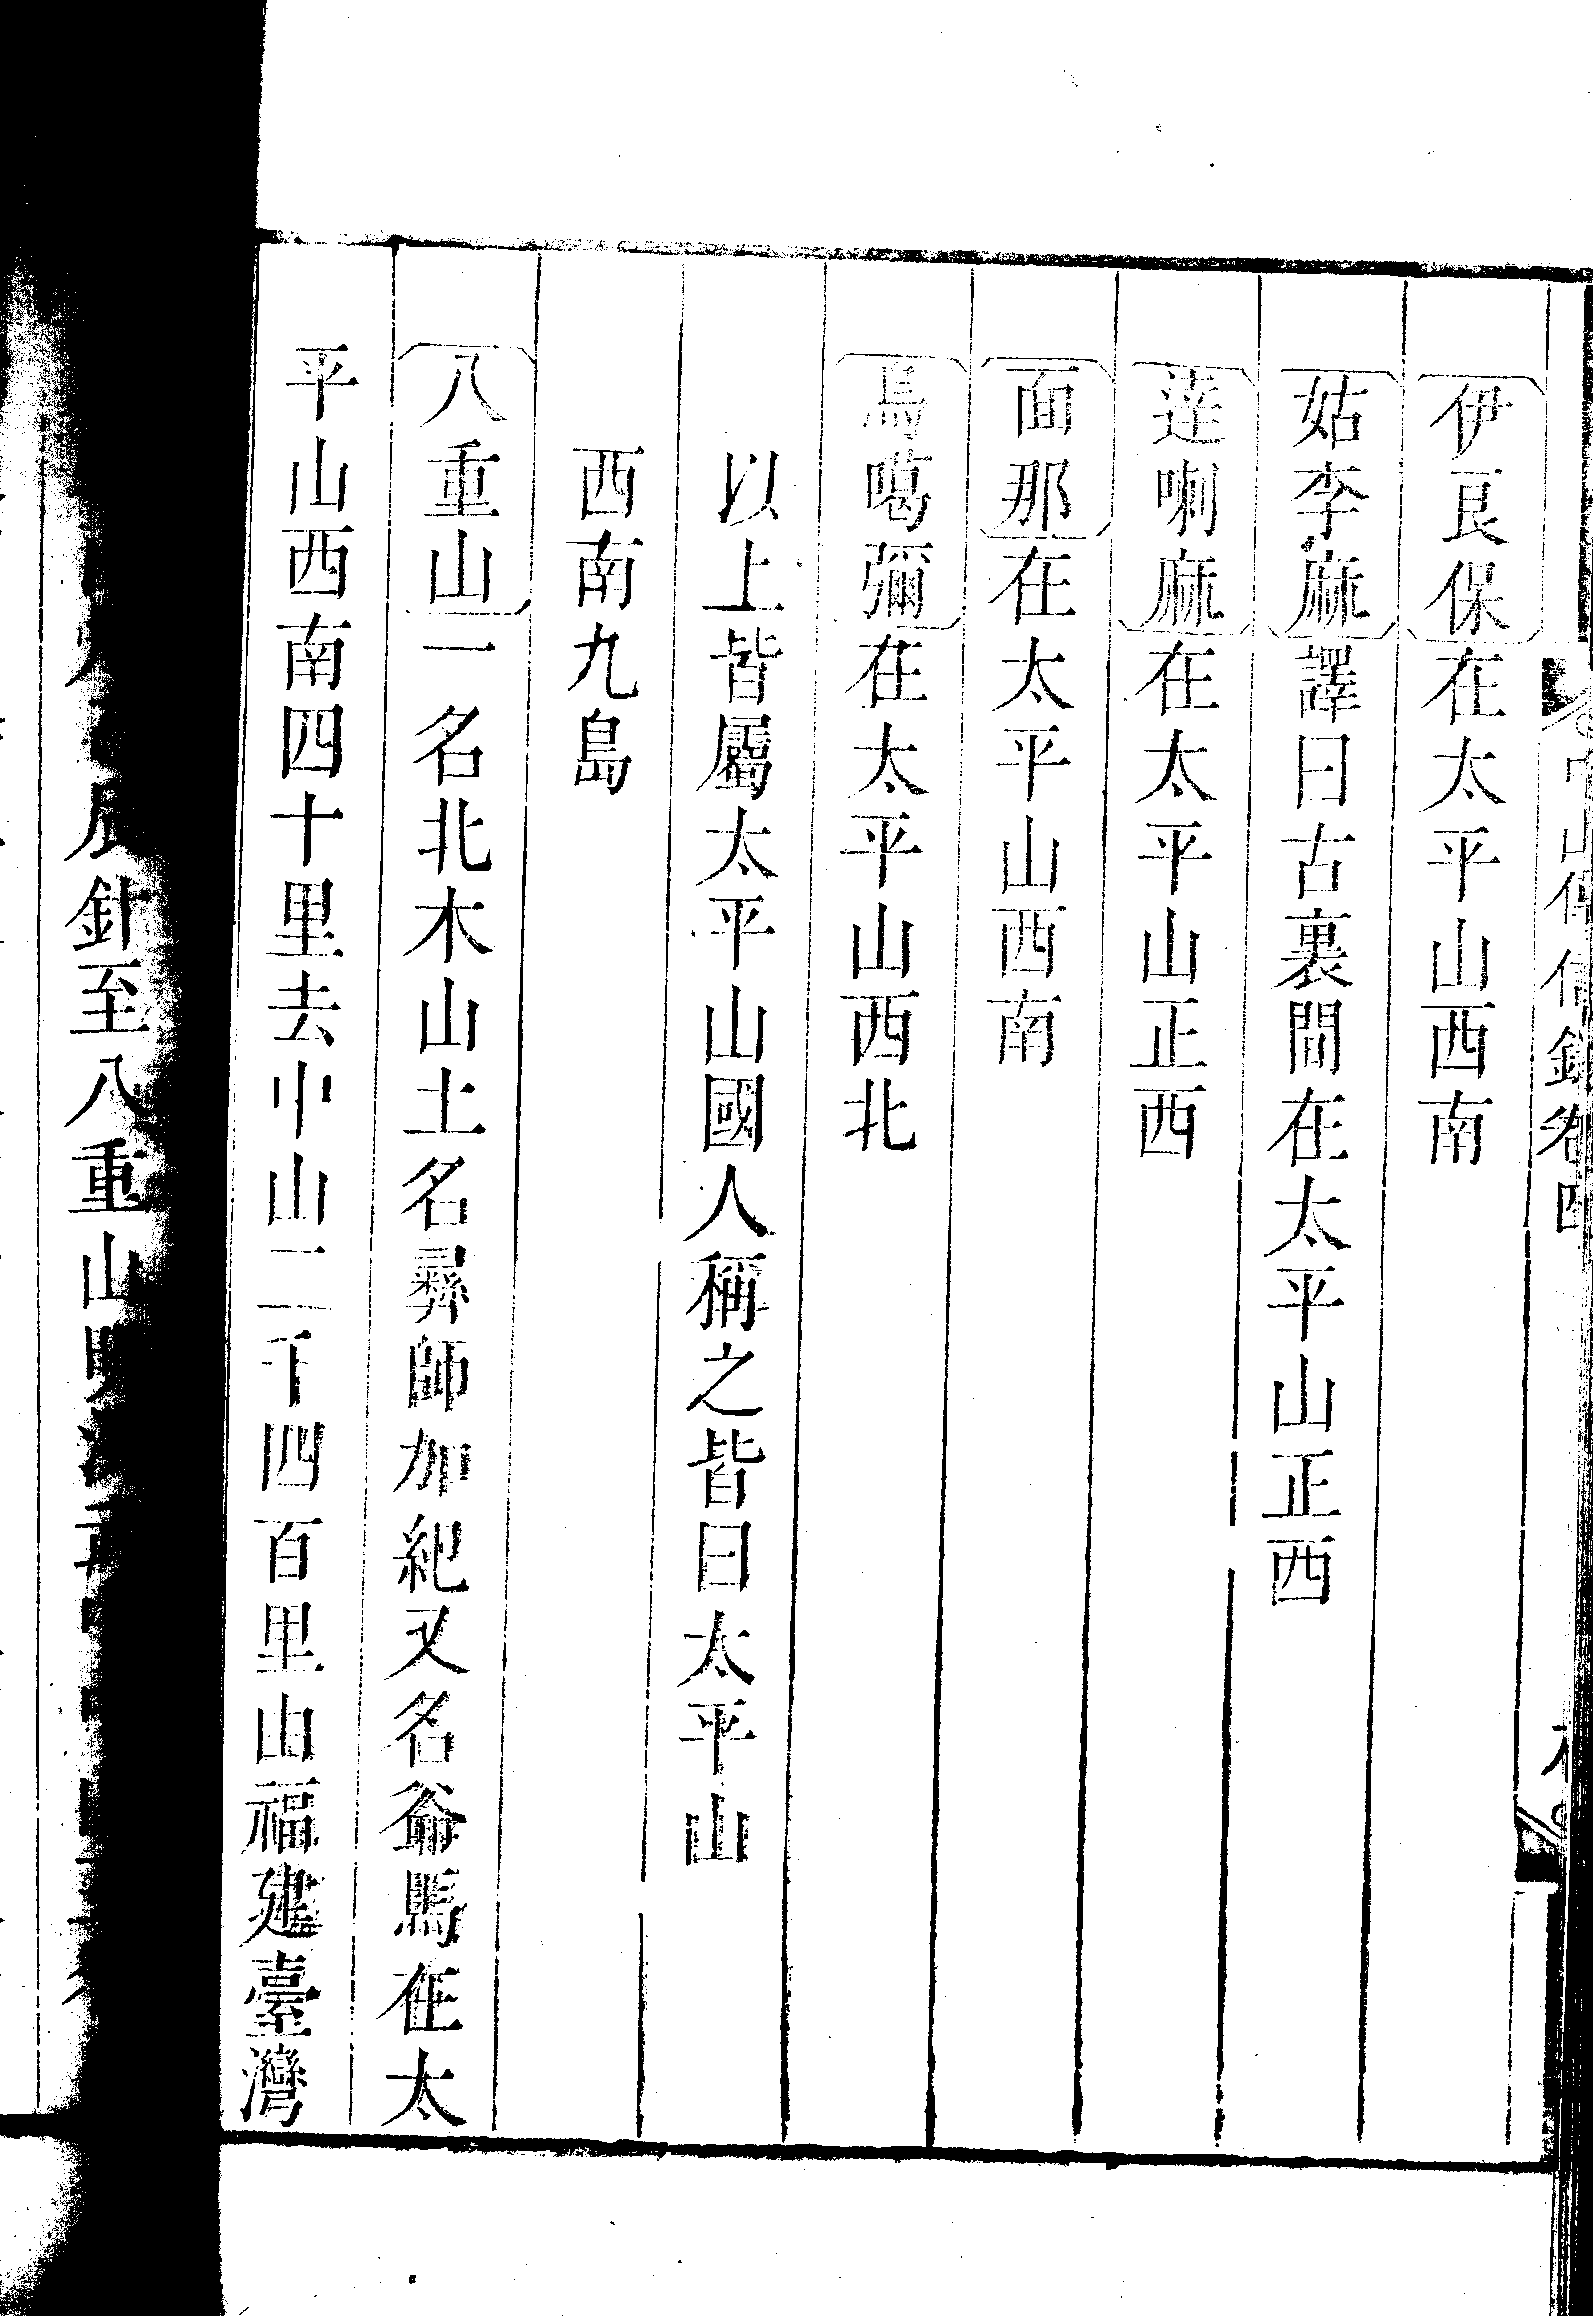 中山傳信錄卷四
伊良保在太平山西南
姑李麻譯曰古裏間在太平山正西
達喇麻在太平山正西
面那在太平山西南
烏噶彌在太平山西北
以上皆屬太平山國人稱之皆曰太平山
西南九島
八重山一名北木山土名彞師加紀又名爺馬在太
平山西南四十里去中山二千四百里由福建臺灣
辰針至八重山